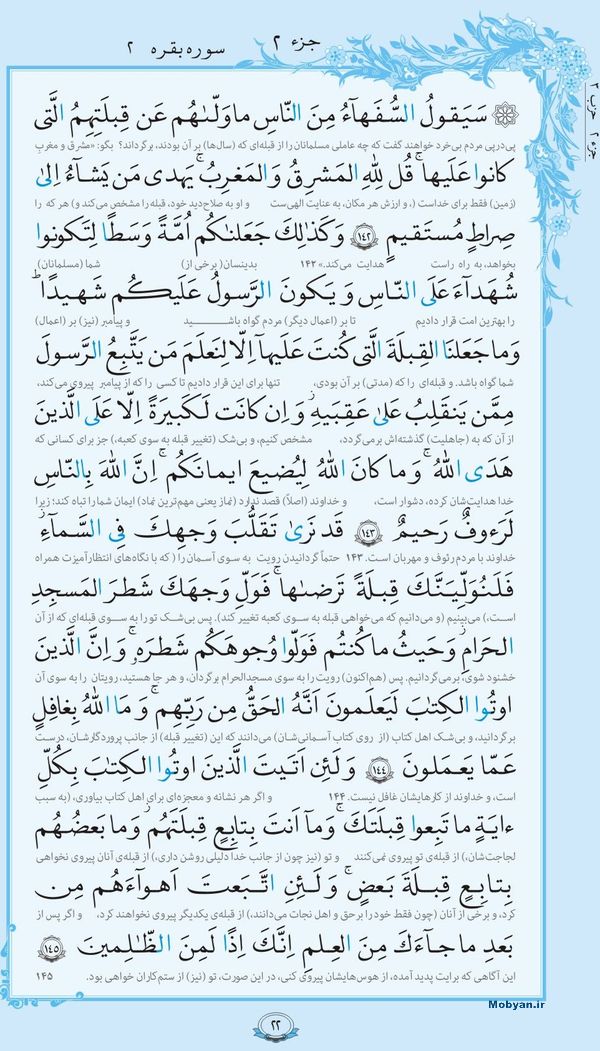 سوره بقره ۲
جزء ۲
جزء ۲ حزب ۳
سَيَقولُ السُّفَهاۤءُ مِنَ النّاسِ ما وَلّىٰهُم عَن قِبلَتِهِمُ الَّتى
پی‌درپی مردم بی‌خرد خواهند گفت که چه عاملی مسلمانان را از قبله‌ای که (سال‌ها) بر آن بودند، برگرداند؟ بگو: «مشرق و مغربِ
كانوا عَلَيها ۚ قُل لِلّٰهِ المَشرِقُ وَ المَغرِبُ ۚ يَهدى مَن يَشاۤءُ اِلىٰ
(زمین) فقط برای خداست (، و ارزش هر مکان، به عنایت الهی‌ست و او به صلاح‌دید خود، قبله را مشخص می‌کند) و هر که را
صِراطٍ مُستَقيمٍ ١٤٢ وَ كَذٰلِكَ جَعَلنٰكُم اُمَّةً وَسَطًا لِتَكونوا
بخواهد، به راه راست هدایت می‌کند.» ۱۴۲ بدینسان (برخی از) شما (مسلمانان)
شُهَداۤءَ عَلَى النّاسِ وَ يَكونَ الرَّسولُ عَلَيكُم شَهيدًا ۗ
را بهترین امت قرار دادیم تا بر (اعمال دیگر) مردم گواه باشید و پیامبر (نیز) بر (اعمال)
وَ ما جَعَلنَا القِبلَةَ الَّتى كُنتَ عَلَيهاۤ اِلّا لِنَعلَمَ مَن يَتَّبِعُ الرَّسولَ
شما گواه باشد. و قبله‌ای را که (مدتی) بر آن بودی، تنها برای این قرار دادیم تا کسی را که از پیامبر پیروی می‌کند،
مِمَّن يَنقَلِبُ عَلىٰ عَقِبَيهِ ۚ وَ اِن كانَت لَكَبيرَةً اِلّا عَلَى الَّذينَ
از آن که به (جاهلیت) گذشته‌اش برمی‌گردد، مشخص کنیم، و بی‌شک (تغییر قبله به سوی کعبه،) جز برای کسانی که
هَدَى اللّٰهُ ۗ وَ ما كانَ اللّٰهُ لِيُضيعَ ايمانَكُم ۚ اِنَّ اللّٰهَ بِالنّاسِ
خدا هدایت‌شان کرده، دشوار است، و خداوند (اصلاً) قصد ندارد (نماز یعنی مهم‌ترین نماد) ایمان شما را تباه کند؛ زیرا
لَرَءوفٌ رَحيمٌ ١٤٣ قَد نَرىٰ تَقَلُّبَ وَجهِكَ فِى السَّماۤءِ ۖ
خداوند با مردم رئوف و مهربان است. ۱۴۳ حتماً گردانیدن رویت به سوی آسمان را (که با نگاه‌های انتظارآمیزت همراه
فَلَنُوَلِّيَنَّكَ قِبلَةً تَرضىٰها ۚ فَوَلِّ وَجهَكَ شَطرَ المَسجِدِ
است،) می‌بینیم (و می‌دانیم که می‌خواهی قبله به سوی کعبه تغییر کند). پس بی‌شک تو را به سوی قبله‌ای که از آن
الحَرامِ ۚ وَ حَيثُ ما كُنتُم فَوَلّوا وُجوهَكُم شَطرَه ۗ وَ اِنَّ الَّذينَ
خشنود شوی، برمی‌گردانیم. پس (هم‌اکنون) رویت را به سوی مسجدالحرام برگردان، و هر جا هستید، رویتان را به سوی آن
اوتُوا الكِتٰبَ لَيَعلَمونَ اَنَّهُ الحَقُّ مِن رَبِّهِم ۗ وَ مَا اللّٰهُ بِغافِلٍ
برگردانید، و بی‌شک اهل کتاب (از روی کتاب آسمانی‌شان) می‌دانند که این (تغییر قبله) از جانب پروردگارشان، درست
عَمّا يَعمَلونَ ١٤٤ وَ لَئِن اَتَيتَ الَّذينَ اوتُوا الكِتٰبَ بِكُلِّ
است، و خداوند از کارهایشان غافل نیست. ۱۴۴ و اگر هر نشانه و معجزه‌ای برای اهل کتاب بیاوری، (به سبب
ءايَةٍ ما تَبِعوا قِبلَتَكَ ۚ وَ ماۤ اَنتَ بِتابِعٍ قِبلَتَهُم ۚ وَ ما بَعضُهُم
لجاجت‌شان،) از قبله‌ی تو پیروی نمی‌کنند و تو (نیز چون از جانب خدا دلیلی روشن داری،) از قبله‌ی آنان پیروی نخواهی
بِتابِعٍ قِبلَةَ بَعضٍ ۚ وَ لَئِنِ اتَّبَعتَ اَهواۤءَهُم مِن
کرد، و برخی از آنان (چون فقط خود را بر حق و اهل نجات می‌دانند،) از قبله‌ی یکدیگر پیروی نخواهند کرد، و اگر پس از
بَعدِ ما جاۤءَكَ مِنَ العِلمِ ۙ اِنَّكَ اِذًا لَمِنَ الظّٰلِمينَ ١٤٥
این آگاهی که برایت پدید آمده، از هوس‌هایشان پیروی کنی، در این صورت، تو (نیز) از ستم‌کاران خواهی بود. ۱۴۵
Mobyan.ir
۲۲